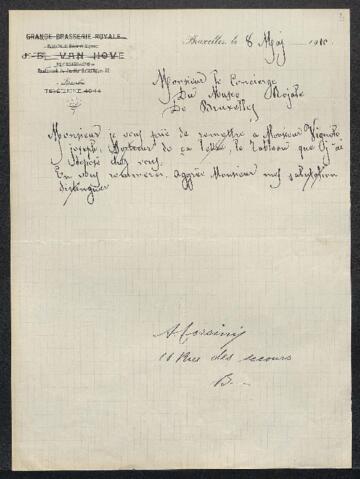 GRANDE BRASSERIE ROYALE
E. VAN HOVE
TÉLÉPHONE 4044
Bruxelles, le 8 Maj 191
Monsieur le Concierge
Du Museo Rojale
De Bruxelles
Monsieur je vous prie de remettre a Monsieur Vignoto
joseph, Porteur de ça lettre, le tableau que j'ai
deposé chez vous.
En vous remerciens. Aggrée Monsieur mes salutation
distinguer
A Corsini
11 Rue des secours
B.